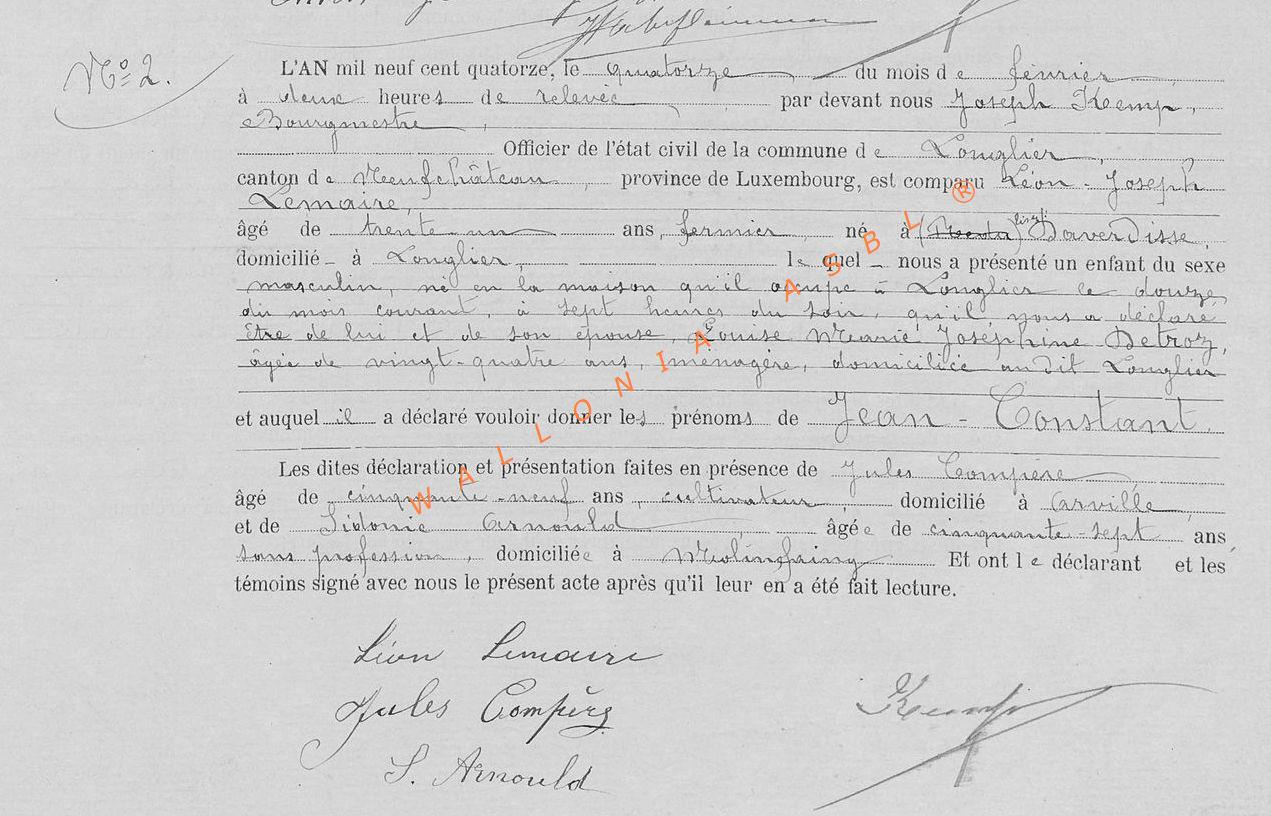 N° 2.
L'AN mil neuf cent quatorze, le quatorze du mois de février
à deux heures de relevée par devant nous Joseph Kemp,
Bourgmestre,
Officier de l'état civil de la commune de Longlier,
canton de Neufchâteau, province de Luxembourg, est comparu Léon-Joseph
Lemaire,
âgé de trente-un ans, fermier, né à Daverdisse,
domicilié à Longlier, lequel nous a présenté un enfant du sexe
masculin, né en la maison qu'il occupe à Longlier le douze
du mois courant, à sept heures du soir, qu'il nous a déclaré
être de lui et de son épouse, Louise Marie Joséphine Detroz,
âgée de vingt-quatre ans, ménagère, domiciliée audit Longlier
et auquel il a déclaré vouloir donner les prénoms de Jean-Constant.
Les dites déclaration et présentation faites en présence de Jules Compère
âgé de cinquante-neuf ans, cultivateur, domicilié à Arville,
et de Sidonie Arnould âgée de cinquante-sept ans,
sans profession, domiciliée à Molinfaing Et ont le déclarant et les
témoins signé avec nous le présent acte après qu'il leur en a été fait lecture.
Léon Lemaire
Jules Compère
Kemp
S. Arnould
WALLONIA ASBL ®